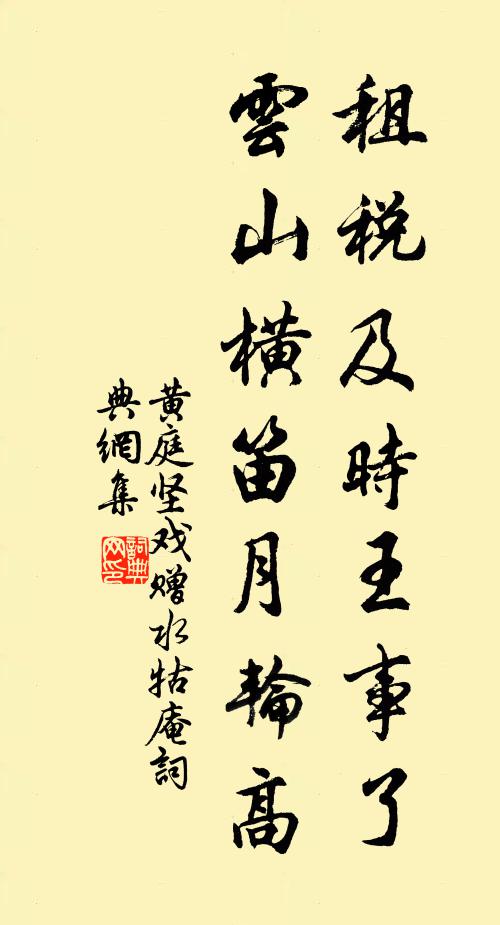 租税及時王事了
雲山橫笛月輪高
黄庭坚戏赠水牯庵詞
典網集
詞典
网印